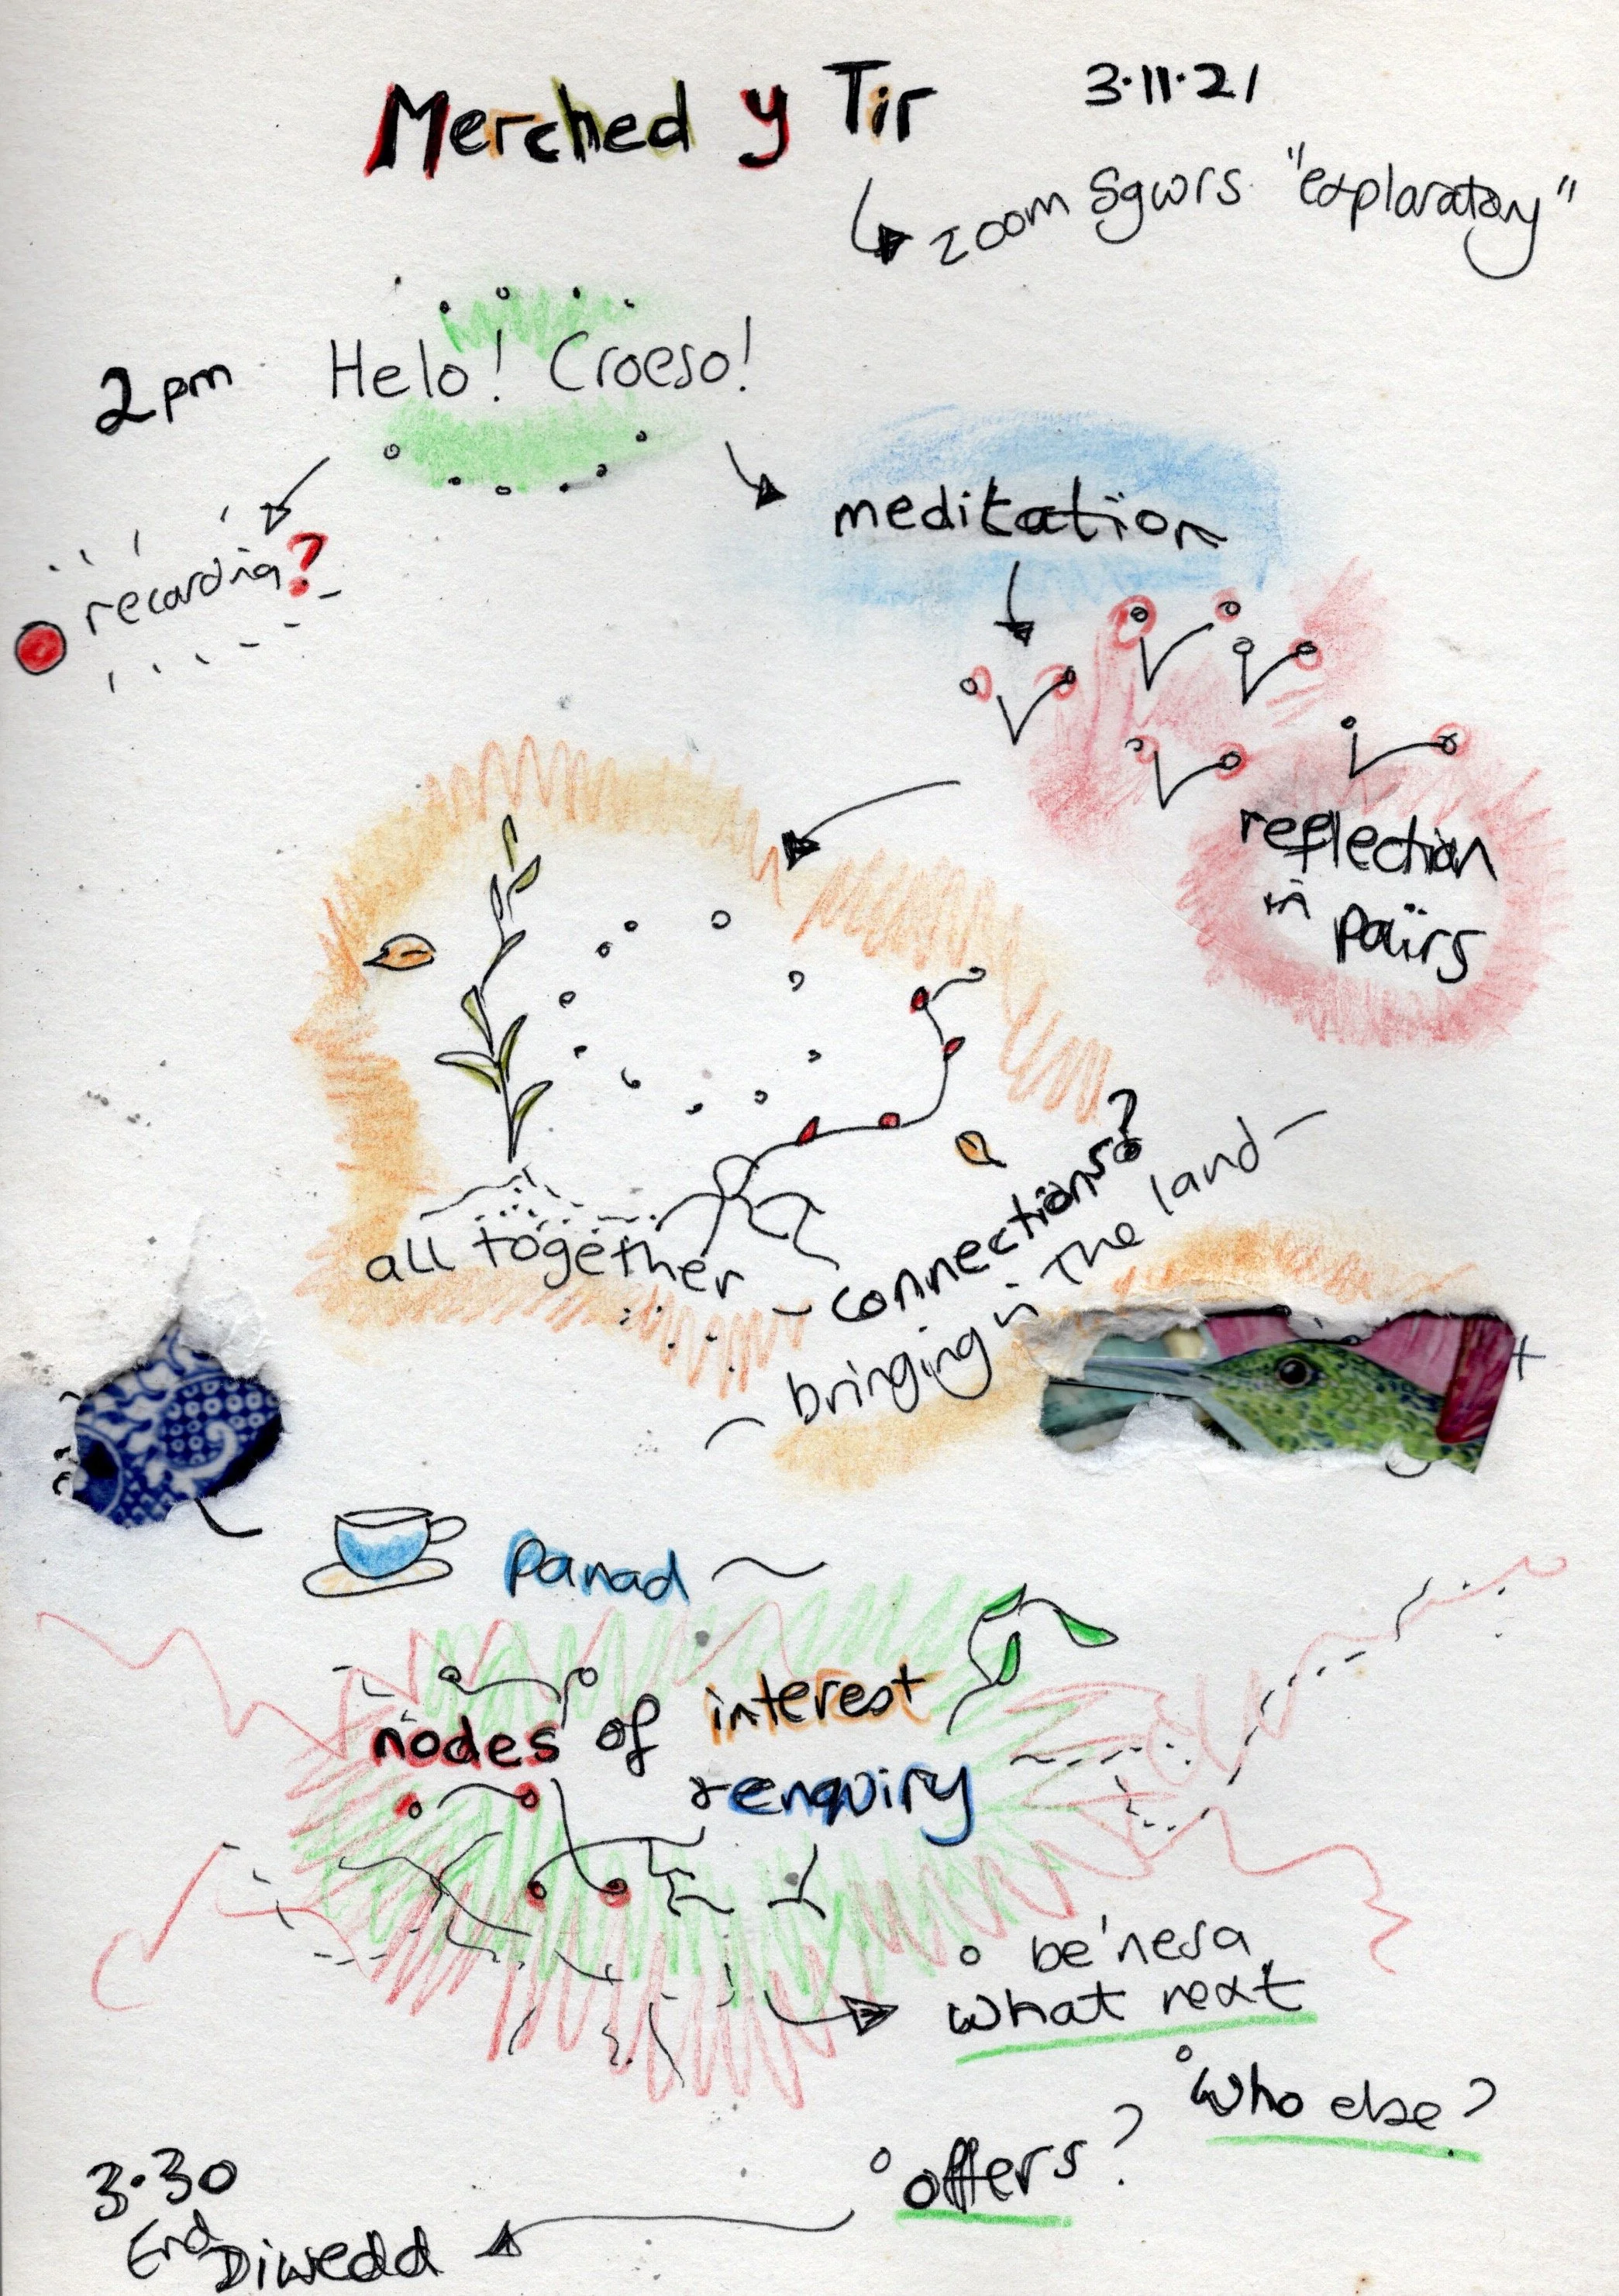 Merched y Tir
3.11.21
zoom Sgwrs "exploratory"
2pm
Helo! Croeso!
recording?
meditation
reflection
in
pairs
all together
- connections?
~ bringing in The land ~
panad ~
nodes of interest
+ enquiry
° be'nesa
what next
° Who else?
° offers?
3.30
End
Diwedd